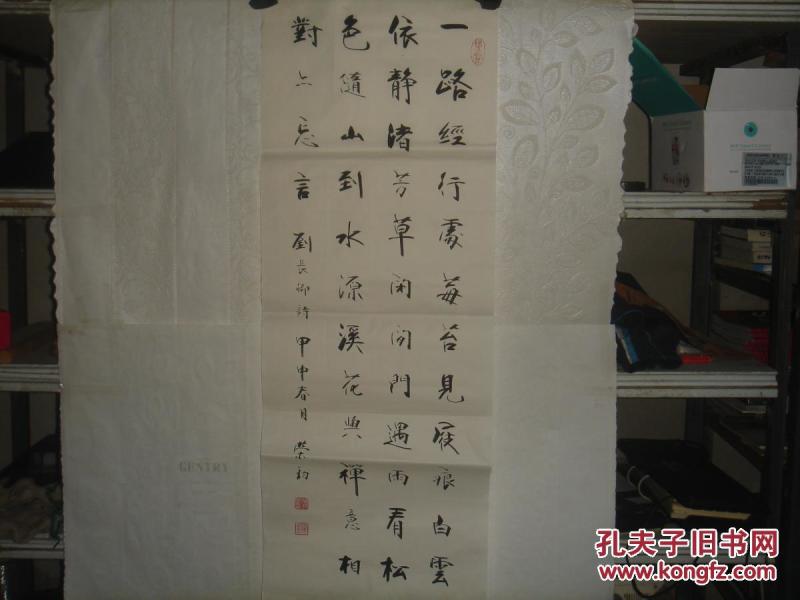 一路經行處莓苔見屐痕白雲
依靜渚芳草閑閉門過雨看松
色隨山到水源溪花與禪意相
對亦忘言 劉長卿詩 甲申春月
GENTRY
孔夫子旧书网
www.kongfz.com